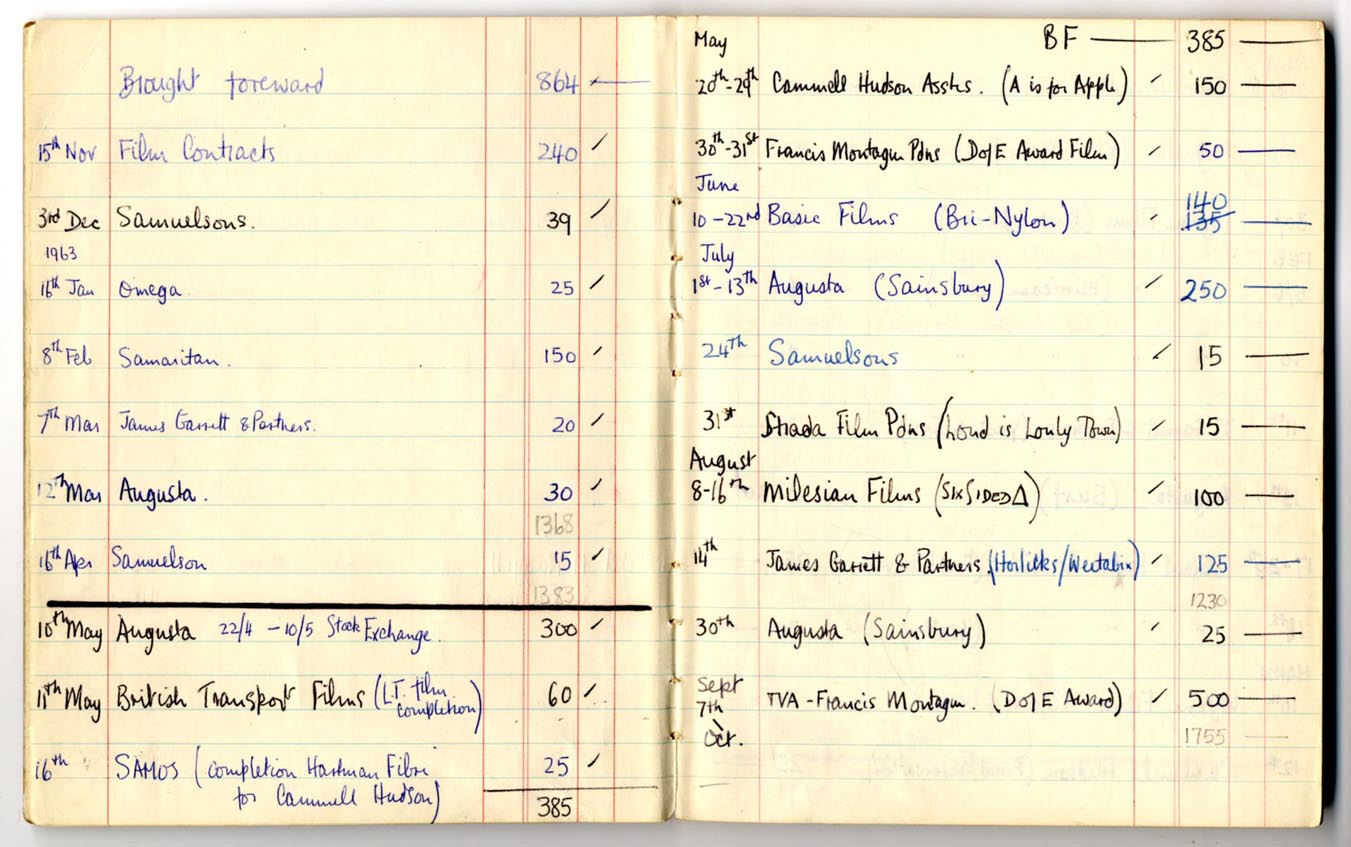 Brought foreward 864
15th Nov Film Contracts 240
3rd Dec Samuelsons. 39
1963
16th Jan Omega. 25
8th Feb Samaritan. 150
7th Mar James Garrett & Partners. 20
12th Mar Augusta. 30
1368
16th Apr Samuelson 15
1383
10th May Augusta 22/4 - 10/5 Stock Exchange. 300
11th May British Transport Films (L.T. film
completion) 60
16th SAMOS (completion Hartman Fibre
for Cammell Hudson) 25
385
May BF 385
20th-29th Cammell Hudson Assts. (A is for Apple) 150
30th-31st Francis Montagu Pdns (D of E Award Film) 50
June
140
10-22nd Basic Films (Bri-Nylon) 135
July
1st-13th Augusta (Sainsbury) 250
24th Samuelsons 15
31st Strada Film Pdns (Lond is Lonly Town) 15
August
8-16th Milesian Films (SIX SIDED Δ) 100
14th James Garrett & Partners. (Horlicks/Weetabix) 125
1230
30th Augusta (Sainsbury) 25
Sept
7th TVA - Francis Montagu. (D of E Award) 500
Oct. 1755